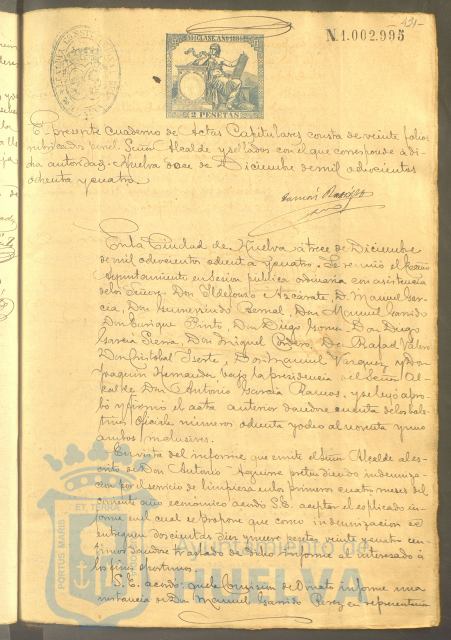 131-
N.1.002.995
CLASE AÑO 1884
2 PESETAS
El presente cuaderno de Actas Capitulares consta de veinte folios
rubricados por el Señor Alcalde y sellados con el que corresponde a di
cha autoridad. Huelva doce de Diciembre de mil ochocientos
ochenta y cuatro.
En la Ciudad de Huelva á trece de Diciembre
de mil ochocientos ochenta y cuatro. Se reunió el Excmo
Ayuntamiento en sesion publica ordinaria con asistencia
de los Señores Don Ildefonso Azcárate, D. Manuel Gar-
cia, Don Gumersindo Bernal, Don Manuel Garrido
Don Enrique Pinto, Don Diego Don Diego
Garcia Sierra, Don Miguel Don Rafael Valero
Don Cristobal Don Manuel Vazquez y Don
Joaquin Hernandez bajo la presidencia del Señor Al-
calde Don Antonio Garcia Ramos, y se leyó apro-
bó y firmó el acta anterior dandose cuenta de los bole-
tines Oficiales números ochenta y ocho al noventa y uno
ambos inclusives.
En vista del informe que emite el Señor Alcalde al es-
crito de Don Antonio pretendiendo indemniza-
cion por el servicio de limpieza en los primeros cuatro meses del
corriente año económico acordó S.E. aceptar el esplicado in-
forme en el cual se propone que como indemnizacion se
entreguen doscientas diez y nueve pesetas veinte y cuatro cen-
timos dandose traslado de dicho informe al interesado á
los fines oportunos.
S.E. acordó que la Comision de Ornato informe una
instancia de Don Manuel Garrido Perez en representacion
PORTUS MARIS ET TERRÆ
Ayuntamiento de
HUELVA